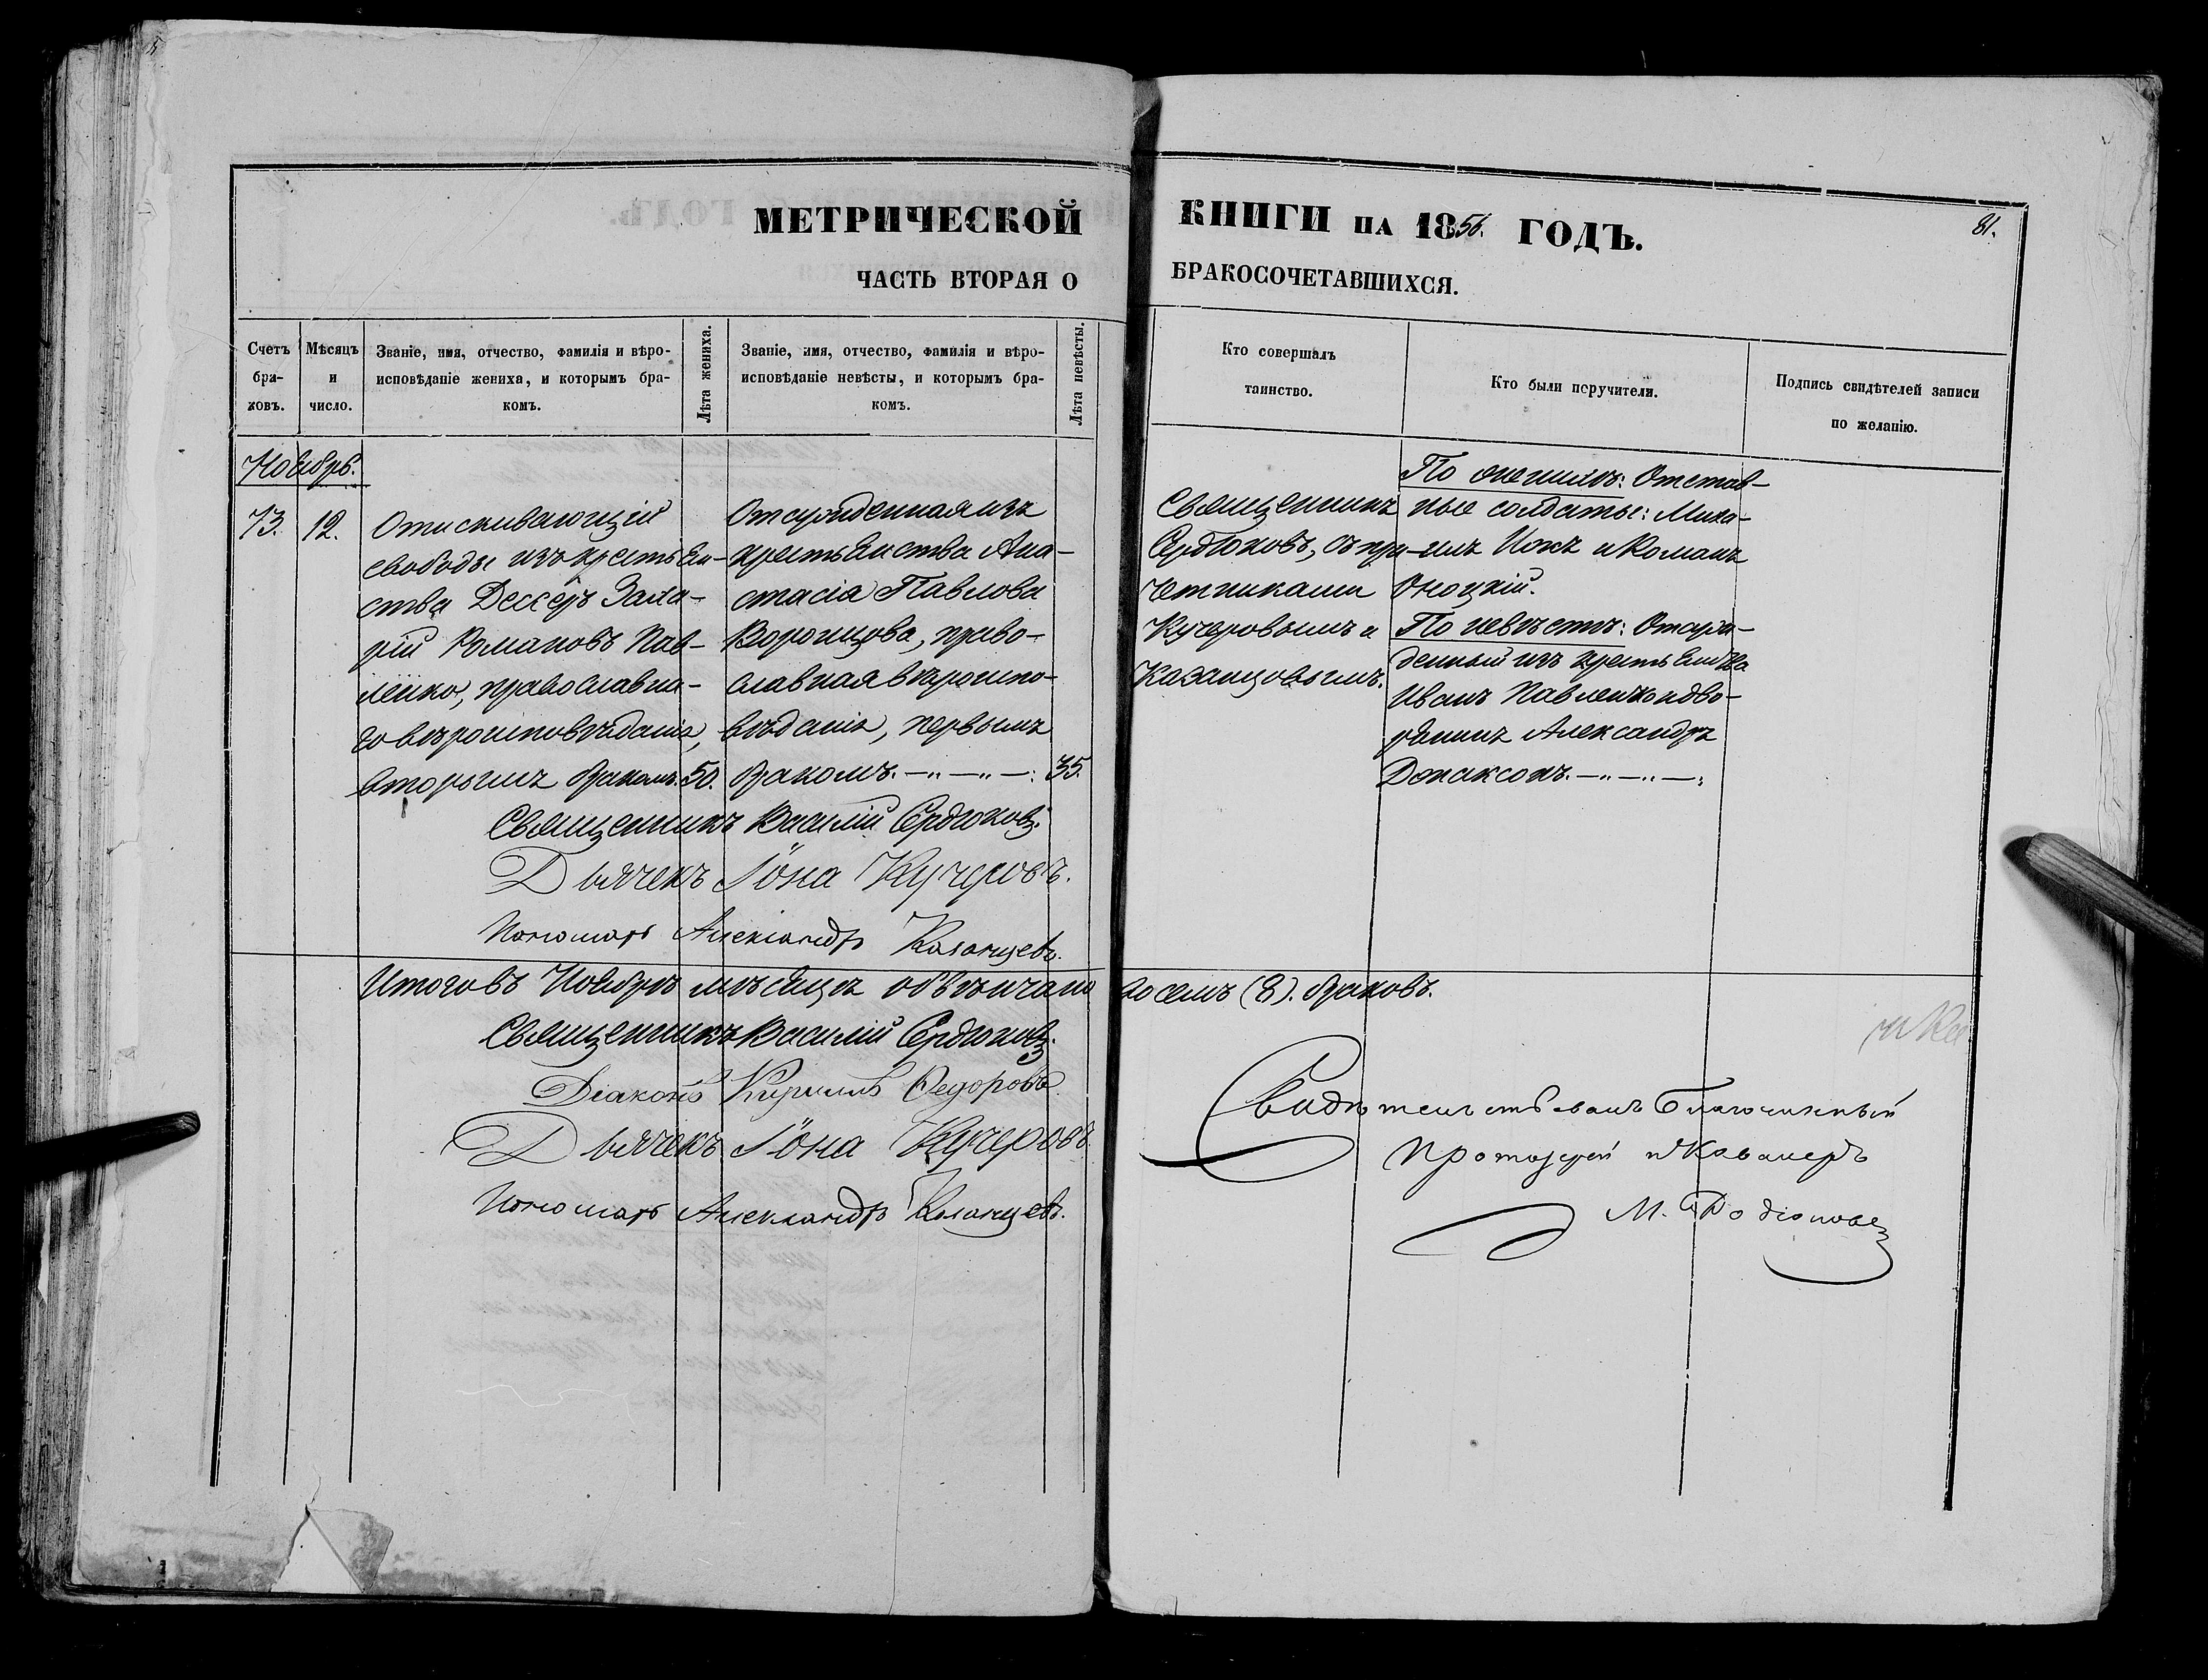 МЕТРИЧЕСКОЙ КНИГИ НА 1856. ГОДЪ.
81.
ЧАСТЬ ВТОРАЯ О БРАКОСОЧЕТАВШИХСЯ.
Счетъ бра-ковъ.
Мѣсяцъ и число.
Званіе, имя, отчество, фамилія и вѣро-
исповѣданіе жениха, и которымъ бра-
комъ.
Лѣта жениха.
Званіе, имя, отчество, фамилія и вѣро-
исповѣданіе невѣсты, и которымъ бра-
комъ.
Лѣта невѣсты.
Кто совершалъ
таинство.
Кто были поручители.
Подпись свидѣтелей записи
по желанію.
Ноябрь.
73. 12.
Отискивающій
свободы изъ крестьян-
ства Захa-
рій Романовъ Пав-
ленко, православна-
го вѣроисповѣданія,
вторымъ бракомъ. 50.
Отсужденная изъ
крестьянства Ана-
стасія Павлова
Воронцова, право-
славная вѣроиспо-
вѣданія, первымъ
бракомъ. 35.
Священникъ
Сердюковъ, съ при-
четниками
Кучеровымъ и
Казанцовымъ.
По женихѣ: Отстав-
ные солдаты: Миха-
илъ и Романъ
По невѣстѣ: Отсуж-
денный изъ крестьянства
Иванъ Павленко и дво-
рянинъ Александръ
Священникъ Василій Сердюковъ.
Дьячекъ Іона Кучеровъ.
Пономарь Александръ Казанцевъ.
Итого въ Ноябрѣ мѣсяцѣ обвѣнчано восемь (8). браковъ.
Священникъ Василій Сердюковъ.
Діаконъ Кириллъ Федоровъ
Дьячекъ Іона Кучеровъ.
Пономарь Александръ Казанцевъ.
Свидѣтельствовалъ Благочинный
Протоіерей и Кавалеръ
М. Родіоновъ